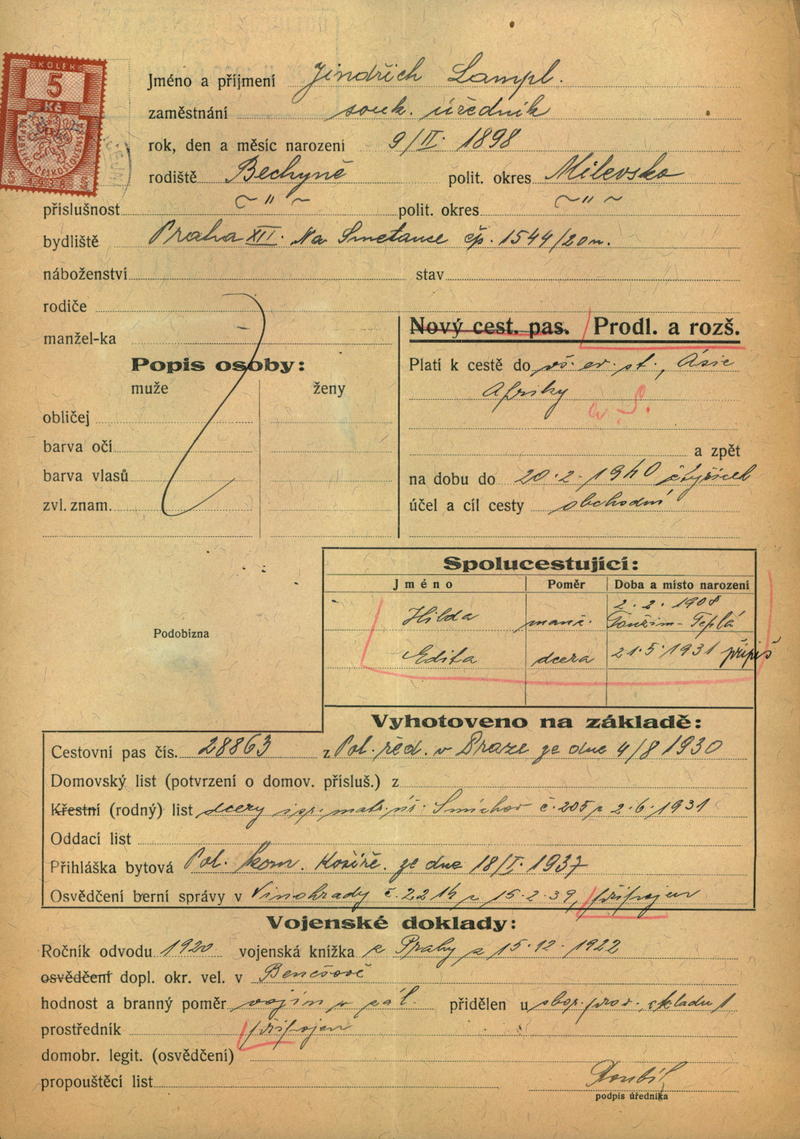 KOLEK
5
Kč
REPUBLIKA ČESKOSLOVENSKÁ
5 1938 5
Jméno a příjmení Jindřich Lampl.
zaměstnání souk. úředník
rok, den a měsíc narození 9/II. 1898
rodiště Bechyně polit. okres Milevsko
příslušnost ~ " ~ polit. okres ~ " ~
bydliště Praha XII. Na Smetance čp. 1544/20n.
náboženství stav
rodiče
manžel-ka
Nový cest. pas. Prodl. a rozš.
Popis osoby:
muže ženy
obličej
barva očí
barva vlasů
zvl. znam.
Platí k cestě do vš. ev. st., Asie
Afriky
a zpět
na dobu do 20.2.1940 čtyřicet
účel a cíl cesty obchodní
Podobizna
Spolucestující:
Jméno Poměr Doba a místo narození
Hilda manž. 2.2.1908
Toužim-Teplá
Edita dcera 21.5.1931 připiš
Vyhotoveno na základě:
Cestovní pas čís. 28863 z Pol. řed. v Praze ze dne 4/8 1930
Domovský list (potvrzení o domov. přísluš.) z
Křestní (rodný) list dcery isr. mat. úř. Smíchov č. 205 z 2.6.1931
Oddací list
Přihláška bytová Pol. kom. Košíře. ze dne 18/I. 1937
Osvědčení berní správy v Vinohrady č. 2214 z 15.2.39, připojen
Vojenské doklady:
Ročník odvodu 1920 vojenská knížka z Prahy z 15.12.1922
osvědčení dopl. okr. vel. v Benešově
hodnost a branný poměr vojín v zál. přidělen u sbor. skladu 1
prostředník připojen
domobr. legit. (osvědčení)
propouštěcí list
podpis úředníka